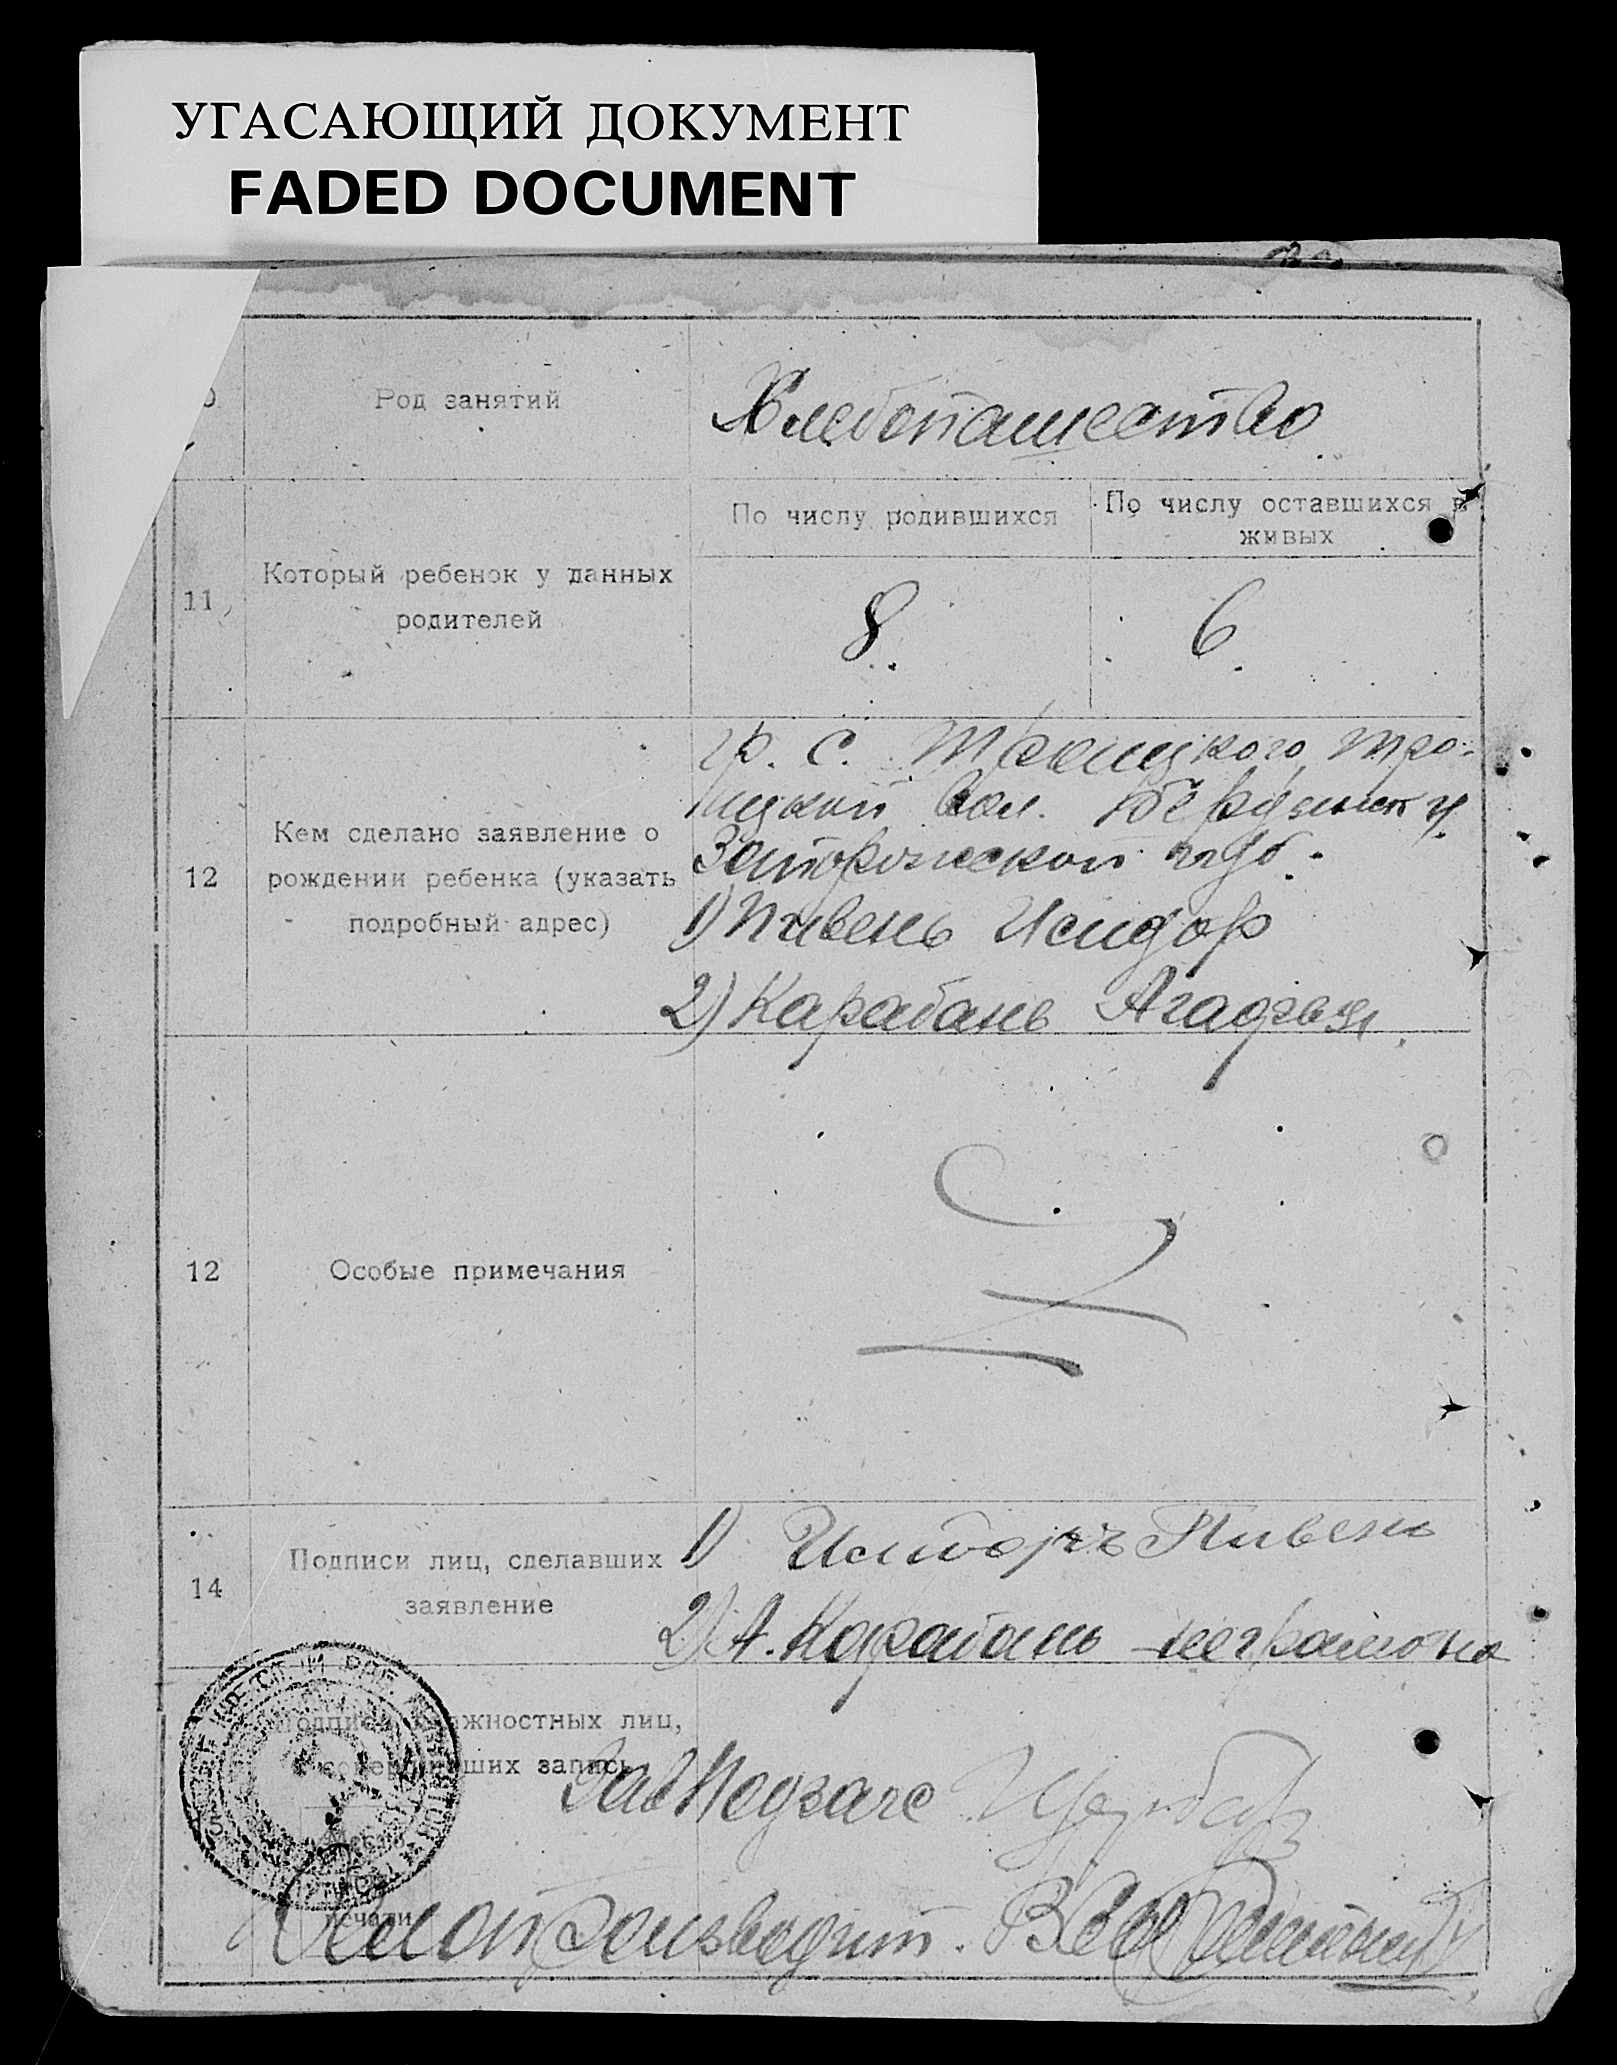 УГАСАЮЩИЙ ДОКУМЕНТ
FADED DOCUMENT
Род занятий
Хлебопашество
11
Который ребенок у данных
родителей
По числу родившихся
По числу оставшихся в
живых
8
6
12
Кем сделано заявление о
рождении ребенка (указать
подробный адрес)
гр. с. Троицкого Тро-
ицкой вол. Бердянск у.
Запорожской губ.
1) Пивень Исидор
2) Карабань Агафья
12
Особые примечания
14
Подписи лиц, сделавших
заявление
1) Исидоръ Пивень
2) А. Карабань неграмотна
Подписи должностных лиц,
совершивших запись
Место
печати
Зав Педзагс
Делопроизводит.